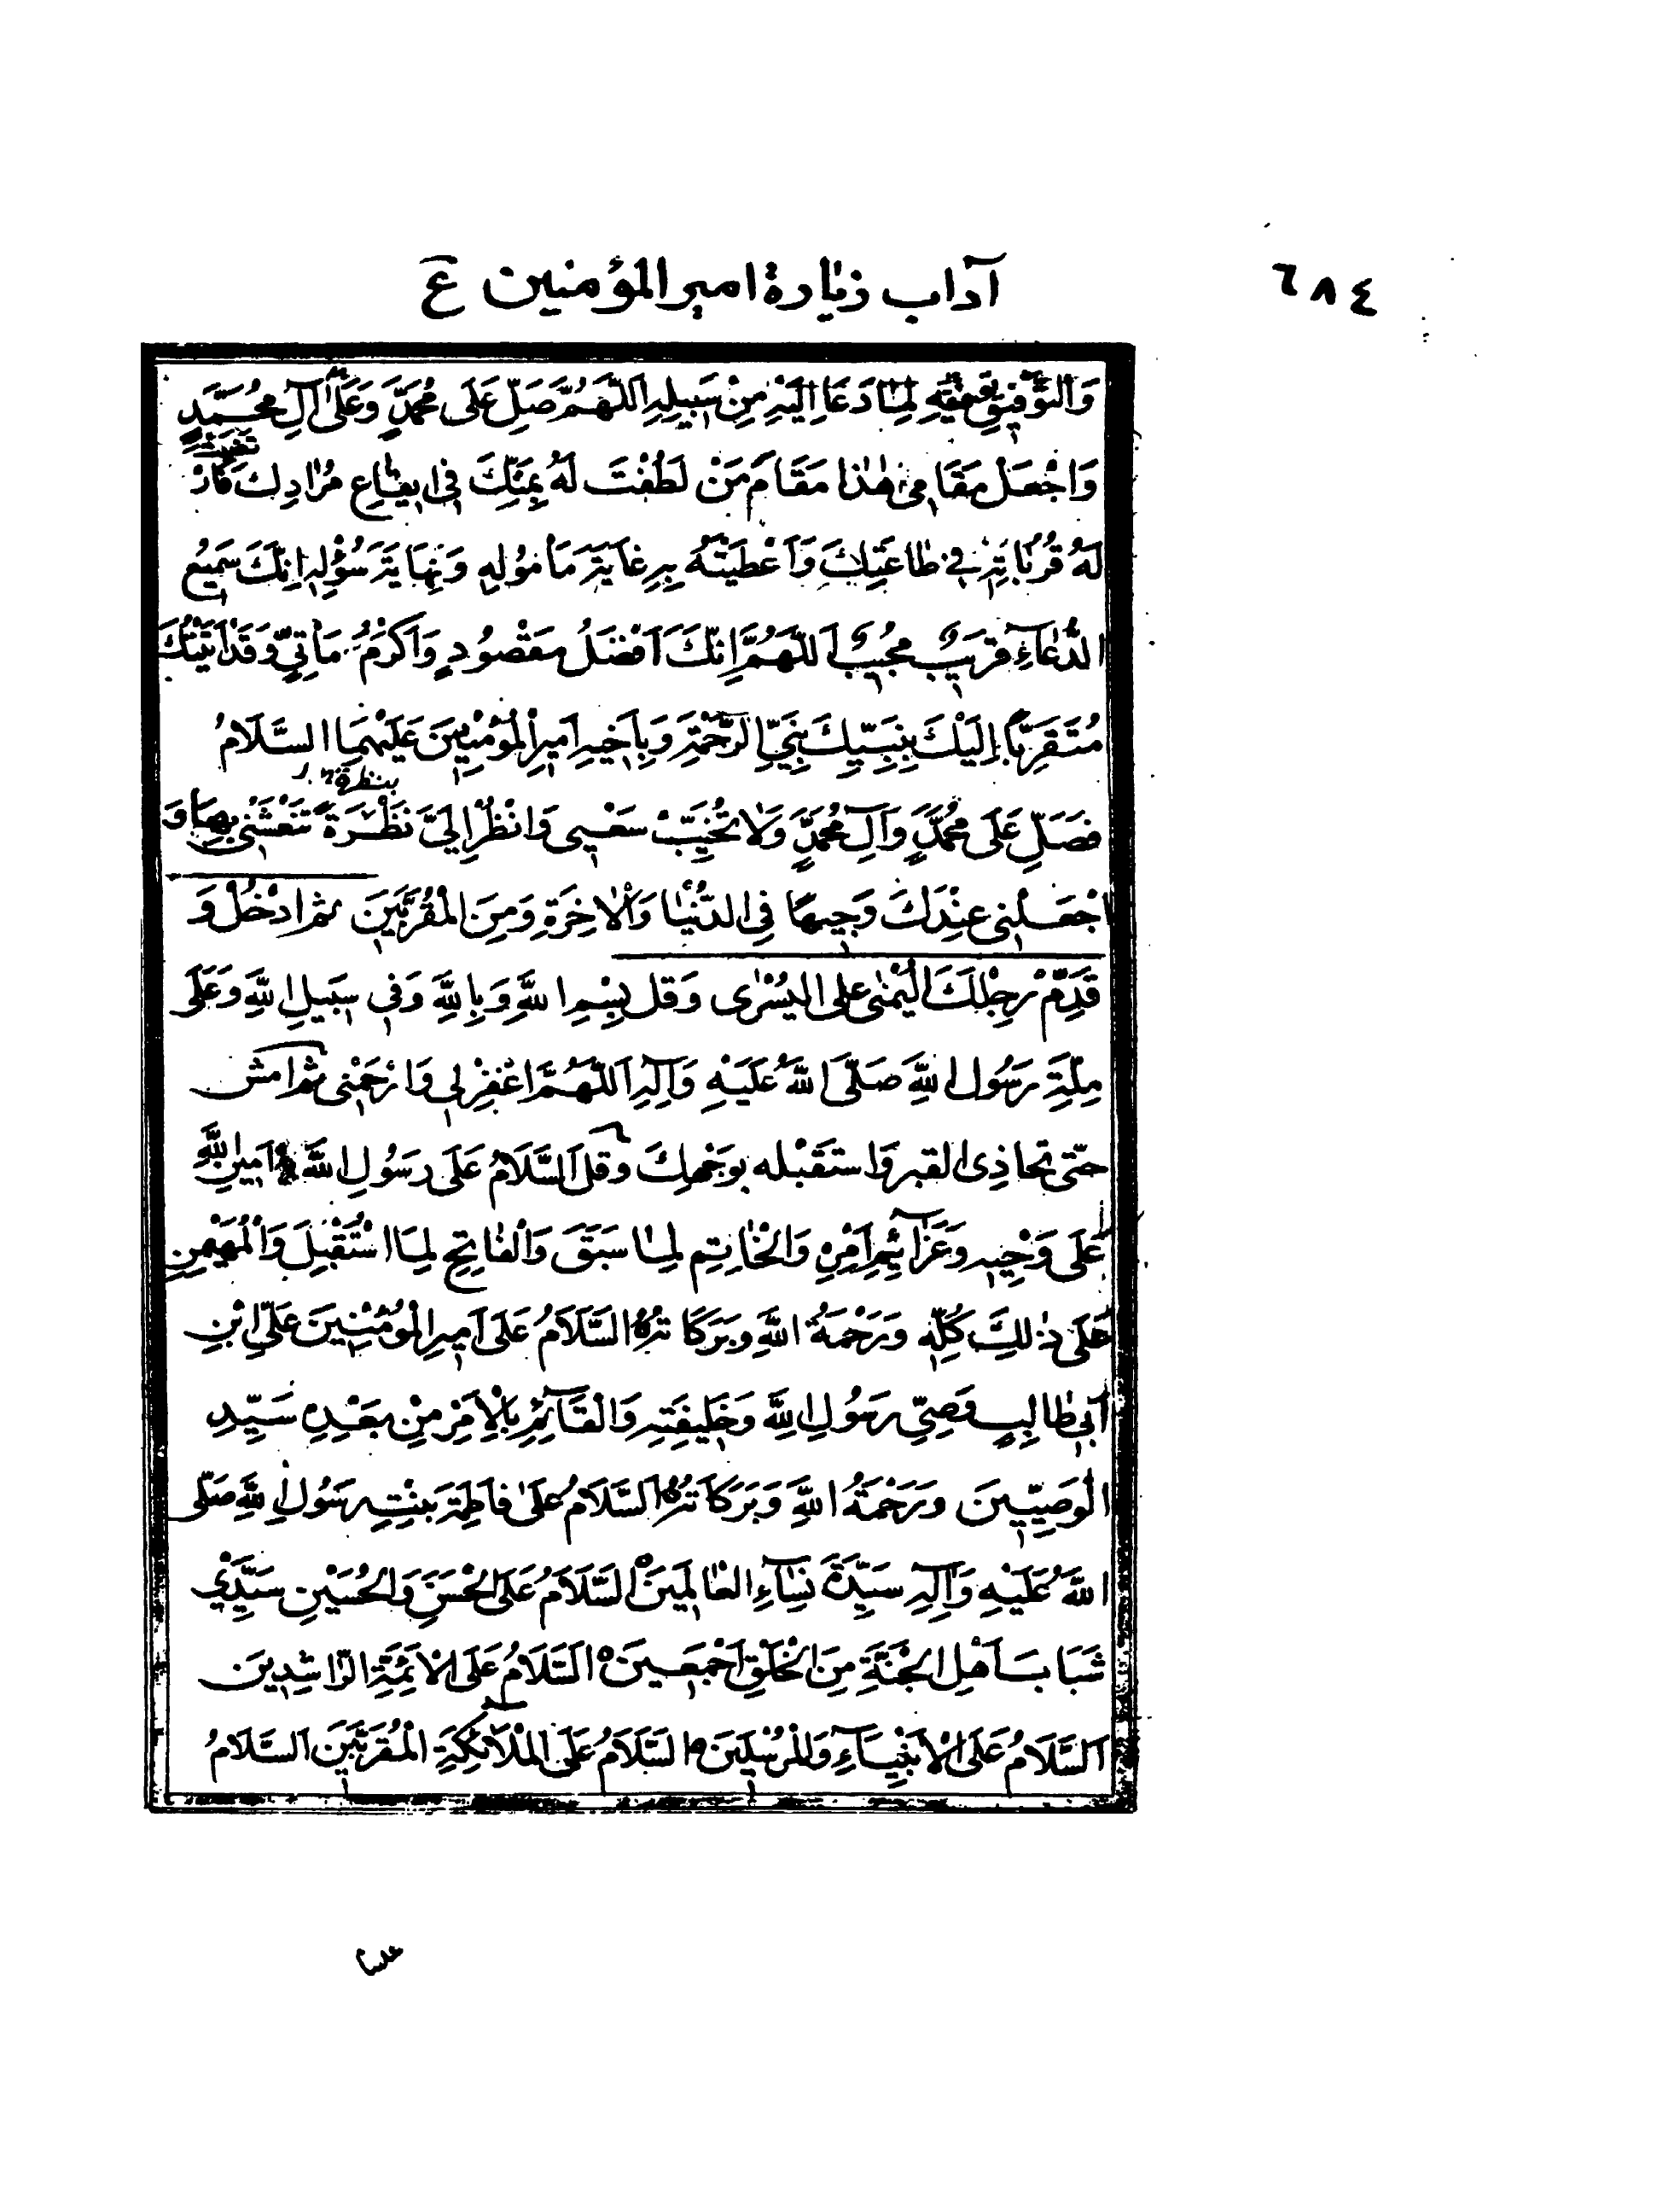 ٦٨٤
آداب زيارة اميرالمؤمنين ع
وَالتَّوْفِيقِ لِمَا دَعَا اِلَيْهِ مِنْ سَبِيلِهِ اَللّٰهُمَّ صَلِّ عَلَى مُحَمَّدٍ وَعَلٰى آلِ مُحَمَّدٍ
وَاجْعَلْ مَقَامِي هٰذَا مَقَامَ مَنْ لَطُفْتَ لَهُ بِمَنِّكَ فِي ايقَاعِ مُرَادِكَ وَارْ
لَهُ قُرُبَاتِهِ فِي طَاعَتِكَ وَاَعْطَيْتَهُ بِهِ غَايَةَ مَأْمُولِهِ وَنِهَايَةَ سُؤْلِهِ اِنَّكَ سَمِيعُ
الدُّعَآءِ قَرِيبٌ مُجِيبٌ اَللّٰهُمَّ اِنَّكَ اَفْضَلُ مَقْصُودٍ وَاَكْرَمُ مَأْتِيٍّ وَقَدْ اَتَيْتُكَ
مُتَقَرِّبًا اِلَيْكَ بِنَبِيِّكَ نَبِيِّ الرَّحْمَةِ وَبِاَخِيهِ اَمِيرِ الْمُؤْمِنِينَ عَلَيْهِمَا السَّلَامُ
بنظرة
فَصَلِّ عَلَى مُحَمَّدٍ وَآلِ مُحَمَّدٍ وَلَا تُخَيِّبْ سَعْيِي وَانْظُرْ اِلَيَّ نَظْرَةً تَنْعَشُنِي بِهَا وَ
اجْعَلْنِي عِنْدَكَ وَجِيهًا فِي الدُّنْيَا وَالْاٰخِرَةِ وَمِنَ الْمُقَرَّبِينَ ثم ادْخُلْ وَ
قَدِّمْ رِجْلَكَ الْيُمْنٰى على اليُسْرٰى وَقل بِسْمِ اللّٰهِ وَبِاللّٰهِ وَفِي سَبِيلِ اللّٰهِ وَعَلَى
مِلَّةِ رَسُولِ اللّٰهِ صَلَّى اللّٰهُ عَلَيْهِ وَآلِهِ اَللّٰهُمَّ اغْفِرْ لِي وَارْحَمْنِي ثم امش
حتّى تحاذِى القبر وَاستقبْله بوَجْهِكَ وقل اَلسَّلَامُ عَلَى رَسُولِ اللّٰهِ اَمِينِ اللّٰهِ
عَلَى وَحْيِهِ وَعَزَآئِمِ اَمْرِهِ وَالْخَاتِمِ لِمَا سَبَقَ وَالْفَاتِحِ لِمَا اسْتُقْبِلَ وَالْمُهَيْمِنِ
عَلَى ذٰلِكَ كُلِّهِ وَرَحْمَةُ اللّٰهِ وَبَرَكَاتُهُ السَّلَامُ عَلَى اَمِيرِ الْمُؤْمِنِينَ عَلِيِّ ابْنِ
اَبِي طَالِبٍ وَصِيِّ رَسُولِ اللّٰهِ وَخَلِيفَتِهِ وَالْقَآئِمِ بِالْاَمْرِ مِنْ بَعْدِهِ سَيِّدِ
الْوَصِيِّينَ وَرَحْمَةُ اللّٰهِ وَبَرَكَاتُهُ السَّلَامُ عَلٰى فاطِمَةَ بِنْتِ رَسُولِ اللّٰهِ صَلَّى
اللّٰهُ عَلَيْهِ وَآلِهِ سَيِّدَةِ نِسَآءِ الْعَالَمِينَ السَّلَامُ عَلَى الْحَسَنِ وَالْحُسَيْنِ سَيِّدَيْ
شَبَابِ اَهْلِ الْجَنَّةِ مِنَ الْخَلْقِ اَجْمَعِينَ اَلسَّلَامُ عَلَى الْاَئِمَّةِ الرَّاشِدِينَ
اَلسَّلَامُ عَلَى الْاَنْبِيَآءِ وَالْمُرْسَلِينَ السَّلَامُ عَلَى الْمَلَائِكَةِ الْمُقَرَّبِينَ اَلسَّلَامُ